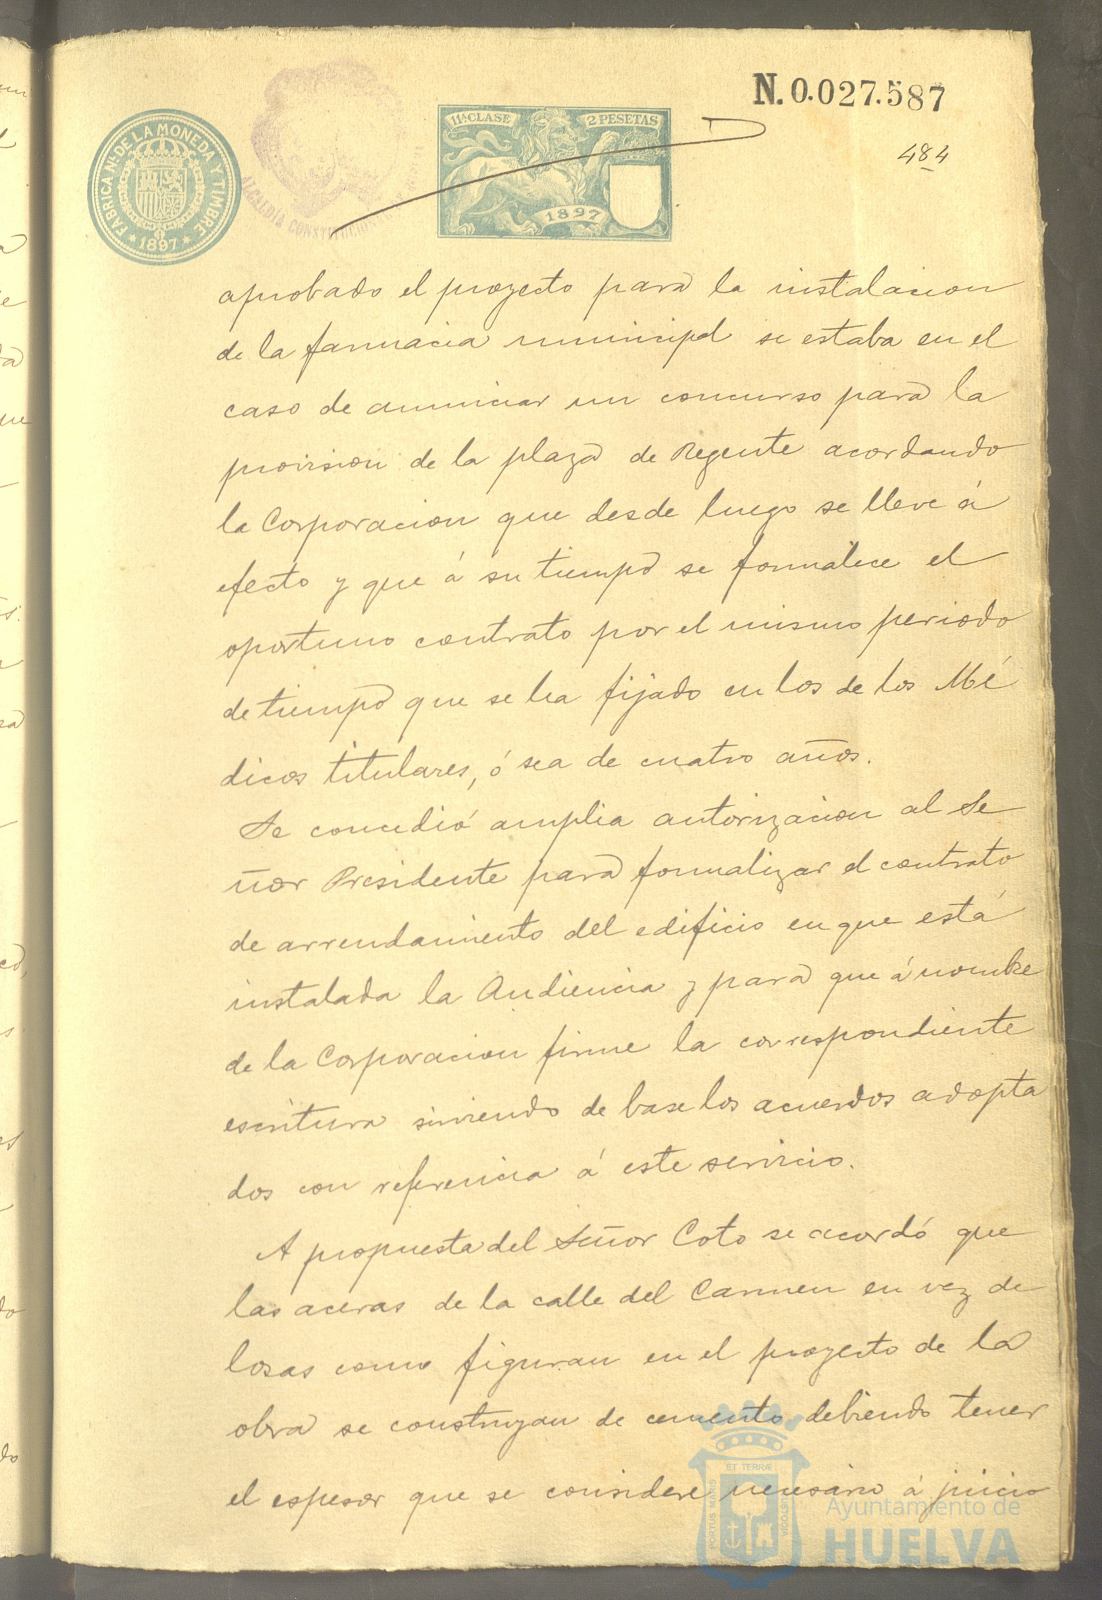 N. 0.027.587
484
FABRICA NL. DE LA MONEDA Y TIMBRE
* 1897 *
ALCALDÍA CONSTITUCION
11ª CLASE 2 PESETAS
1897
aprobado el proyecto para la instalacion
de la farmacia municipal se estaba en el
caso de anunciar un concurso para la
provision de la plaza de Regente acordando
la Corporacion que desde luego se lleve á
efecto y que á su tiempo se formalice el
oportuno contrato por el mismo periodo
de tiempo que se ha fijado en los de los Mé
dicos titulares, ó sea de cuatro años.
Se concedió amplia autorizacion al Se
ñor Presidente para formalizar el contrato
de arrendamiento del edificio en que está
instalada la Audiencia y para que á nombre
de la Corporacion firme la correspondiente
escritura sirviendo de base los acuerdos adopta
dos con referencia á este servicio.
A propuesta del Señor Coto se acordó que
las aceras de la calle del Carmen en vez de
losas como figuran en el proyecto de la
obra se construyan de cemento debiendo tener
el espesor que se considere necesario á juicio
PORTUS MARIS ET TERRÆ CUSTODIA
Ayuntamiento de
HUELVA